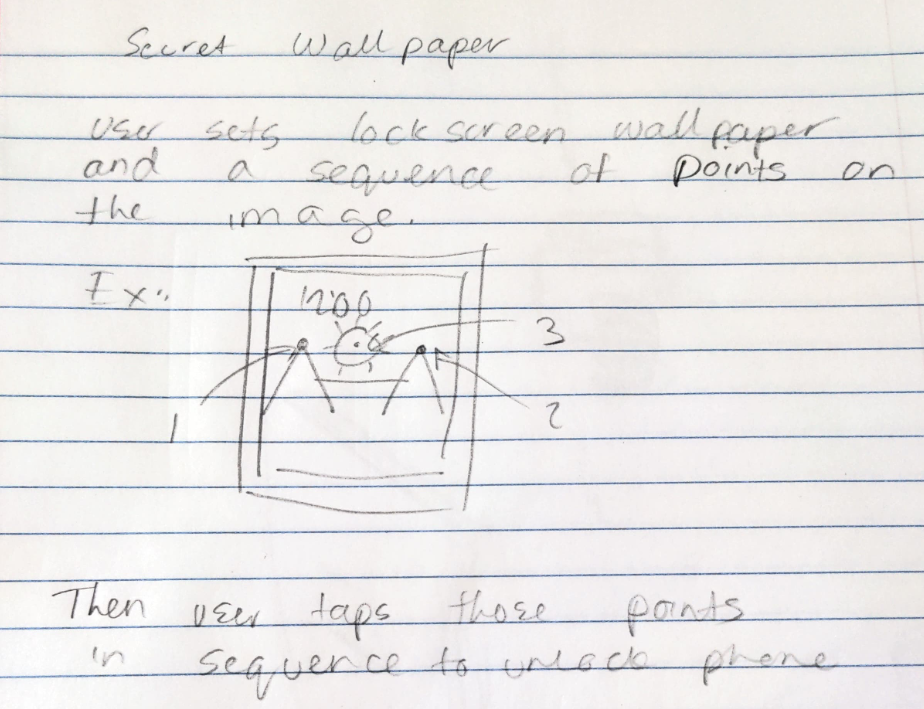 Secret Wallpaper
user sets lock screen wallpaper
and a sequence of points on
the image.
Ex:
1200
3
1
2
Then user taps those points
in sequence to unlock phone